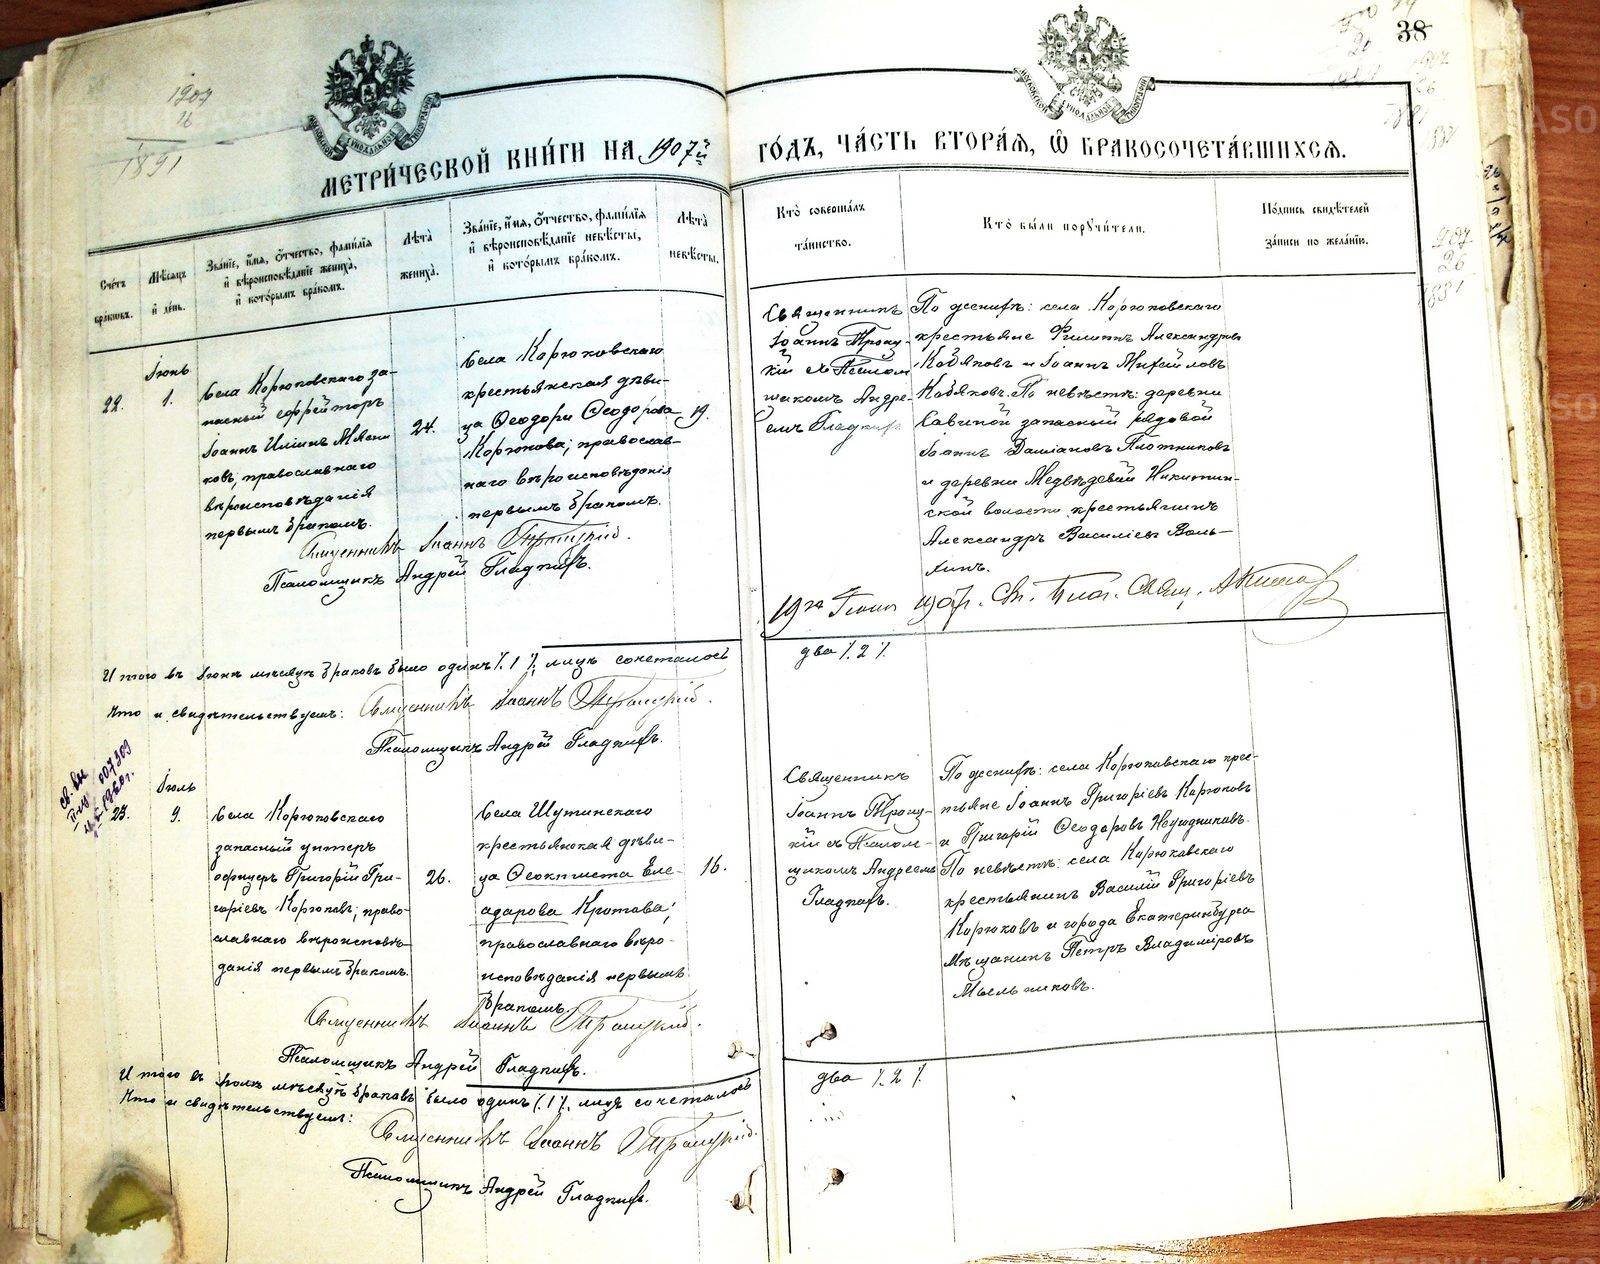 38
1907
26
1891
МЕТРИ́ЧЕСКОЙ КНИ́ГИ НА 1907й ГО́ДЪ, ЧА́СТЬ ВТОРА́Я, Ѡ҆ БРАКОСОЧЕТА́ВШИХСЯ.
Сче́тъ бра́ковъ.
Мѣ́сяцъ и҆ де́нь.
Зва́нїе, и҆́мя, ѻ҆́тчество, фами́лїя и҆ вѣроисповѣ́данїе жениха̀, и҆ кото́рымъ бра́комъ.
Лѣ́та жениха̀.
Зва́нїе, и҆́мя, ѻ҆́тчество, фами́лїя и҆ вѣроисповѣ́данїе невѣ́сты, и҆ кото́рымъ бра́комъ.
Лѣ́та невѣ́сты.
Кто̀ соверша́лъ та́инство.
Кто̀ бы́ли порꙋчи́тели.
По́дпись свидѣ́телей за́писи по жела́нїю.
22.
Іюнь
1.
Села Корюковскаго за-
пасный ефрейторъ
Іоаннъ Иліинъ Мясни
ковъ, православнаго
вѣроисповѣданія
первымъ бракомъ.
24.
Села Корюковскаго
крестьянская дѣви-
ца Ѳеодора Ѳеодорова
Корюкова; православ-
наго вѣроисповѣданія
первымъ бракомъ.
19.
Священникъ
Іоаннъ Троиц-
кій съ Псалом
щикомъ Андре-
емъ Гладкихъ
По женихѣ: села Корюковскаго
крестьяне Филиппъ Александровъ
Кобяковъ и Іоаннъ Михайловъ
Кобяковъ. По невѣстѣ: деревни
Савиной запасный рядовой
Іоаннъ Даміановъ Плотниковъ
и деревни Медвѣдевой Никитин-
ской волости крестьянинъ
Александръ Василіевъ
Священникъ Іоаннъ Троицкій.
Псаломщикъ Андрей Гладкихъ.
19го Іюня 1907г. Св. Благ. Свящ.
Итого въ Іюнѣ мѣсяцѣ браковъ было одинъ /. 1 /. лицъ сочеталось
два /. 2 /.
Что и свидѣтельствуемъ: Священникъ Іоаннъ Троицкій.
Псаломщикъ Андрей Гладкихъ.
23.
Іюль
9.
Села Корюковскаго
запасный унтеръ
офицеръ Григорій Гри-
горіевъ Корюковъ; право-
славнаго вѣроисповѣ-
данія первымъ бракомъ.
26.
Села Шутинскаго
крестьянская дѣви-
ца Ѳеоктиста Еле-
азарова Кротова;
православнаго вѣро-
исповѣданія первымъ
бракомъ.
16.
Священникъ
Іоаннъ Троиц-
кій съ Псалом-
щикомъ Андреемъ
Гладкихъ.
По женихѣ: села Корюковскаго крес-
тьяне Іоаннъ Григоріевъ Корюковъ
и Григорій Ѳеодоровъ Неугодниковъ.
По невѣстѣ: села Корюковскаго
крестьянинъ Василій Григоріевъ
Корюковъ и города Екатеринбурга
мѣщанинъ Петръ Владиміровъ
Мыльниковъ.
Священникъ Іоаннъ Троицкій.
Псаломщикъ Андрей Гладкихъ.
Итого въ Іюлѣ мѣсяцѣ браковъ было одинъ /. 1 /. лицъ сочеталось
два /. 2 /.
Что и свидѣтельствуемъ:
Священникъ Іоаннъ Троицкій.
Псаломщикъ Андрей Гладкихъ.